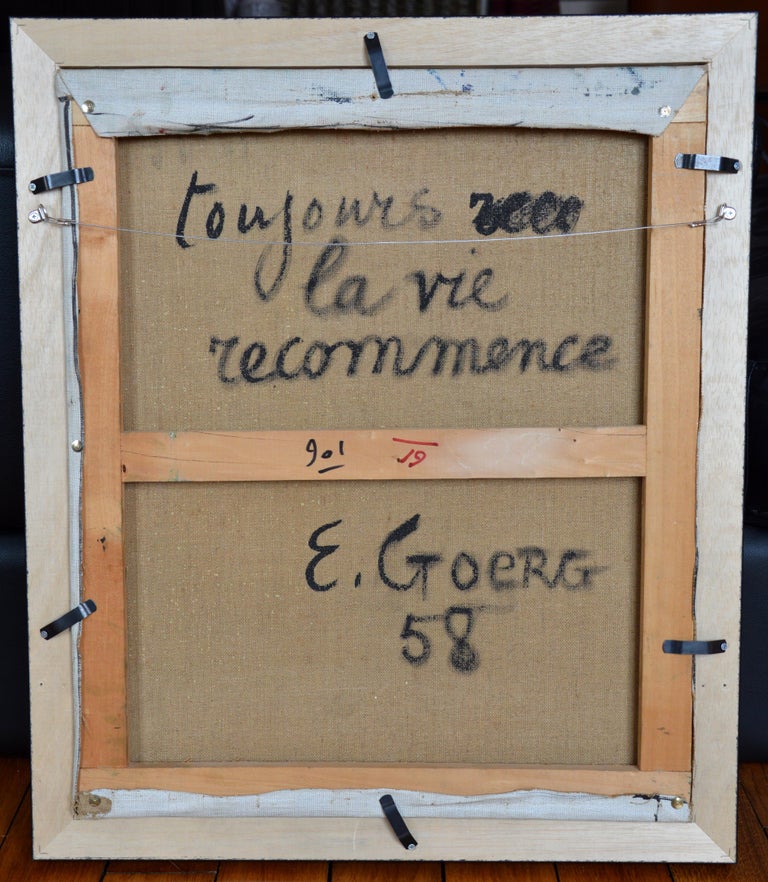 toujours
la vie
recommence
E. GOERG
58